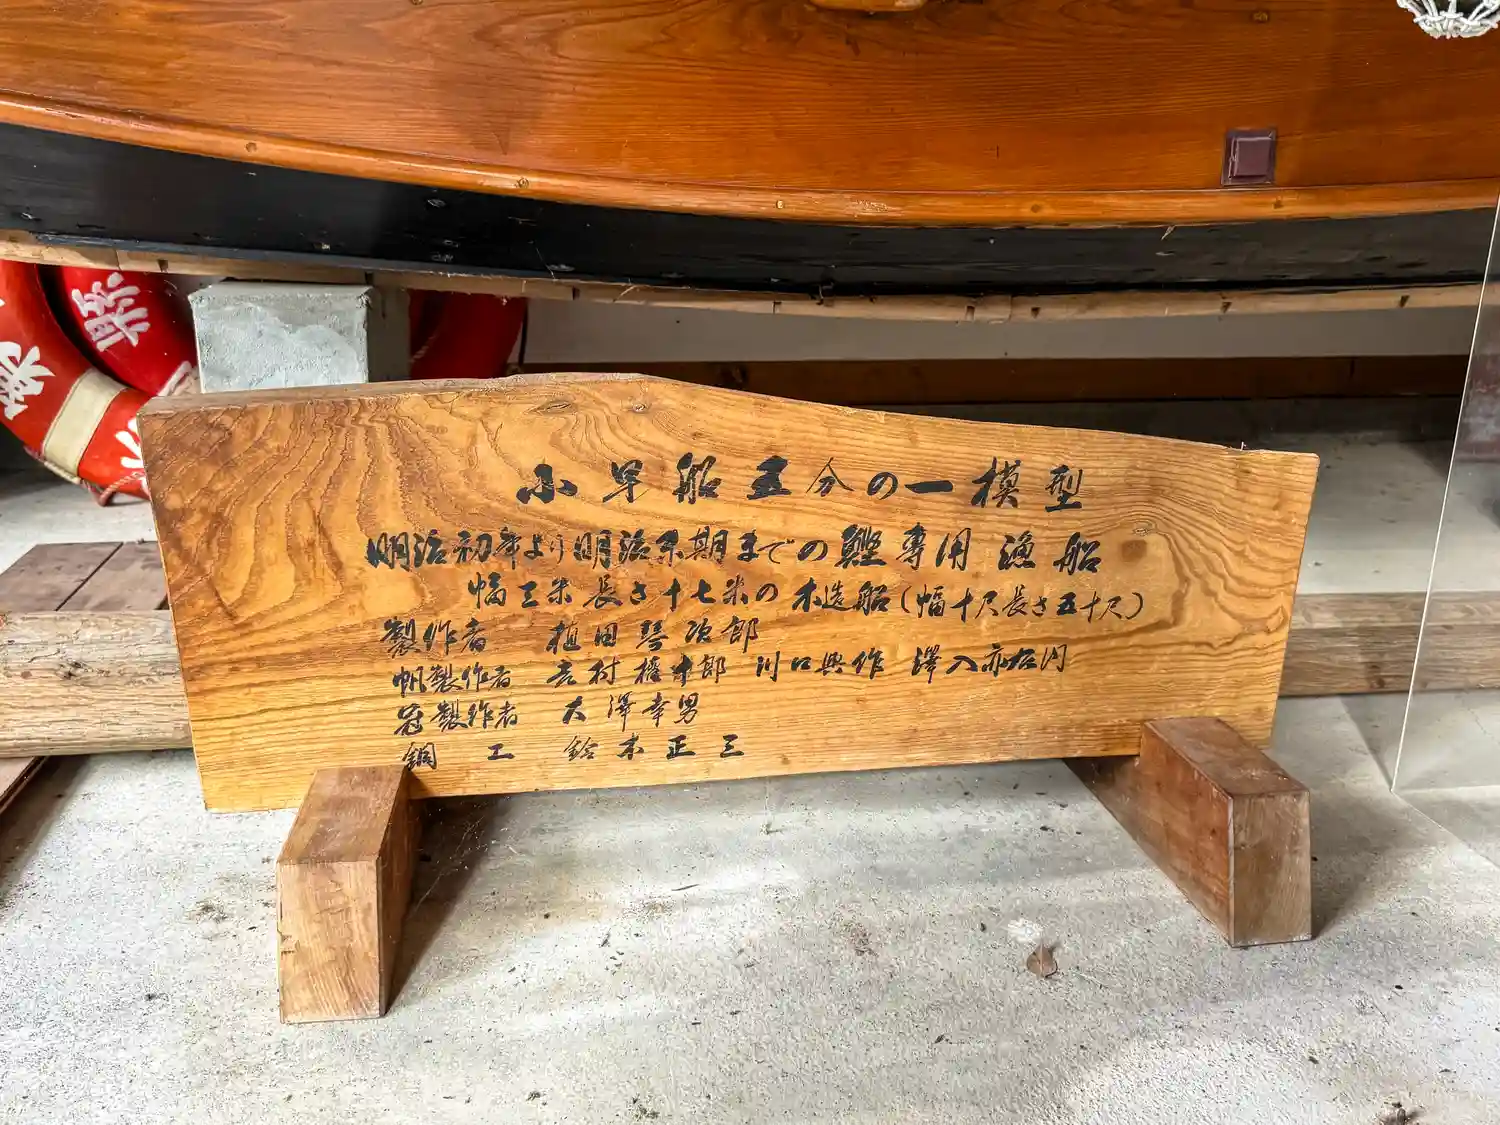 小早船五分の一模型
明治初年より明治末期までの鰹専用漁船
幅三米長さ十七米の木造船(幅十尺長さ五十尺)
製作者 植田琴次郎
帆製作者 吉村 郎 川口興作 澤入亦右门
製作者 大澤幸男
銅工 鈴木正三